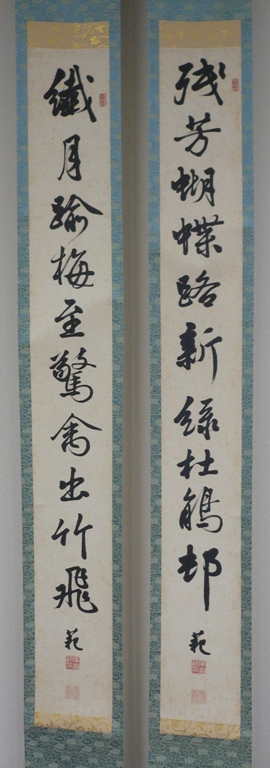 残芳蝴蝶路新緑杜鵑邨
纖月踰梅至驚禽出竹飛